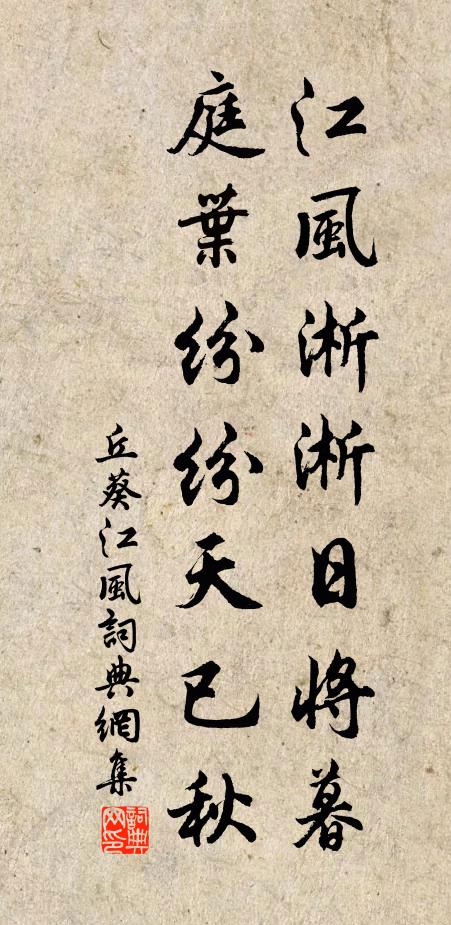 江風淅淅日將暮
庭葉紛紛天已秋
丘葵江風詞典網集
詞典網印